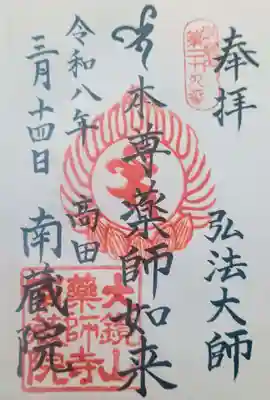 奉拝
弘法大師
本尊薬師如来
高田
南蔵院
令和八年
三月十四日
大鏡山
薬師寺
南蔵院